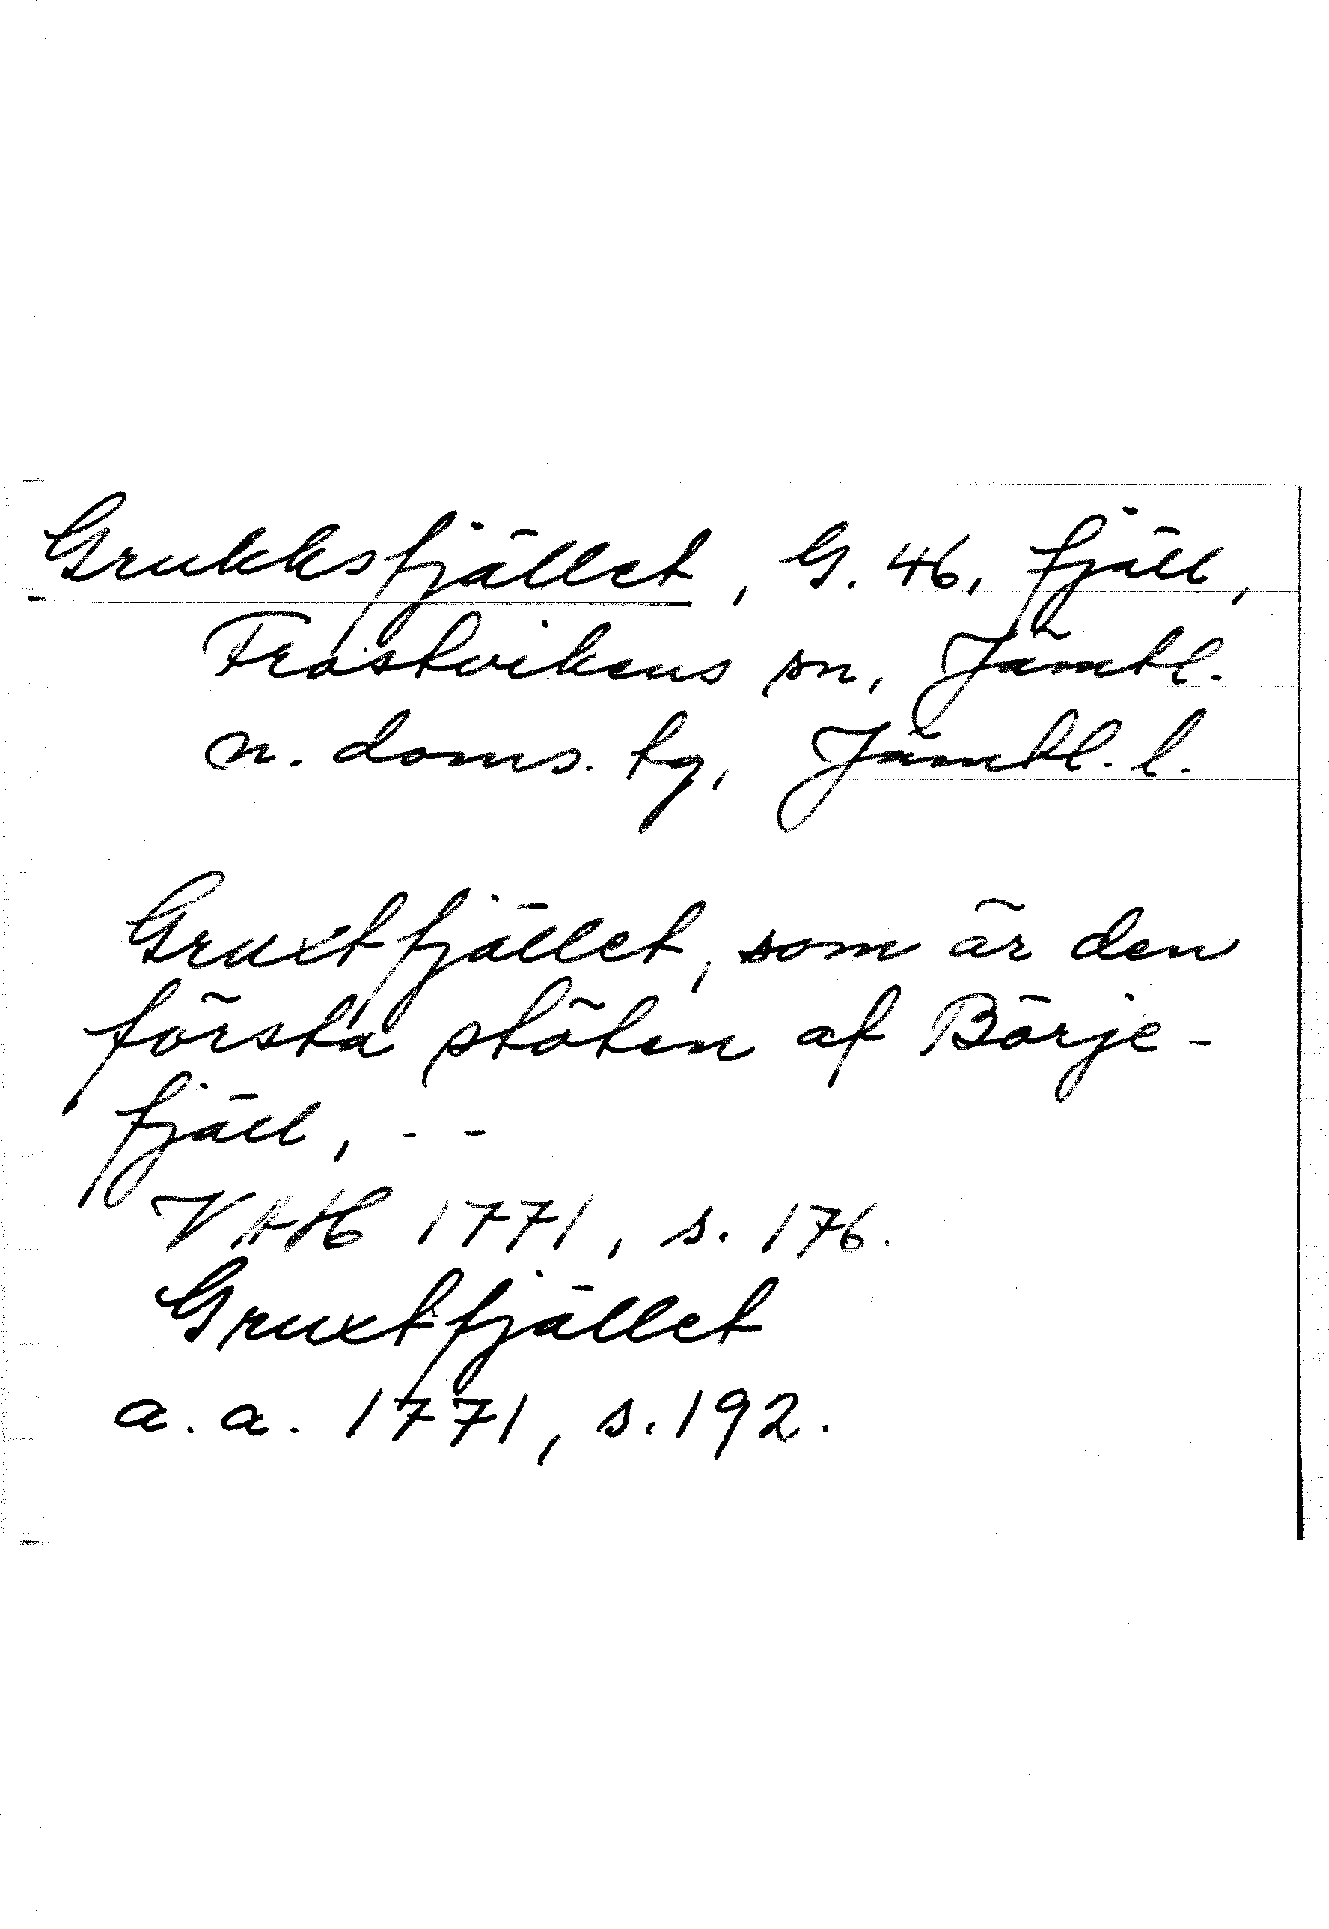 Grukksfjället, G. 46, fjäll,
Frostvikens sn, Jämtl.
n. doms. tg, Jämtl. l.
Gruxtfjället, som är den
första stöten af Börje-
fjäll, - -
VAH 1771, s. 176.
Gruxtfjället
a. a. 1771, s. 192.